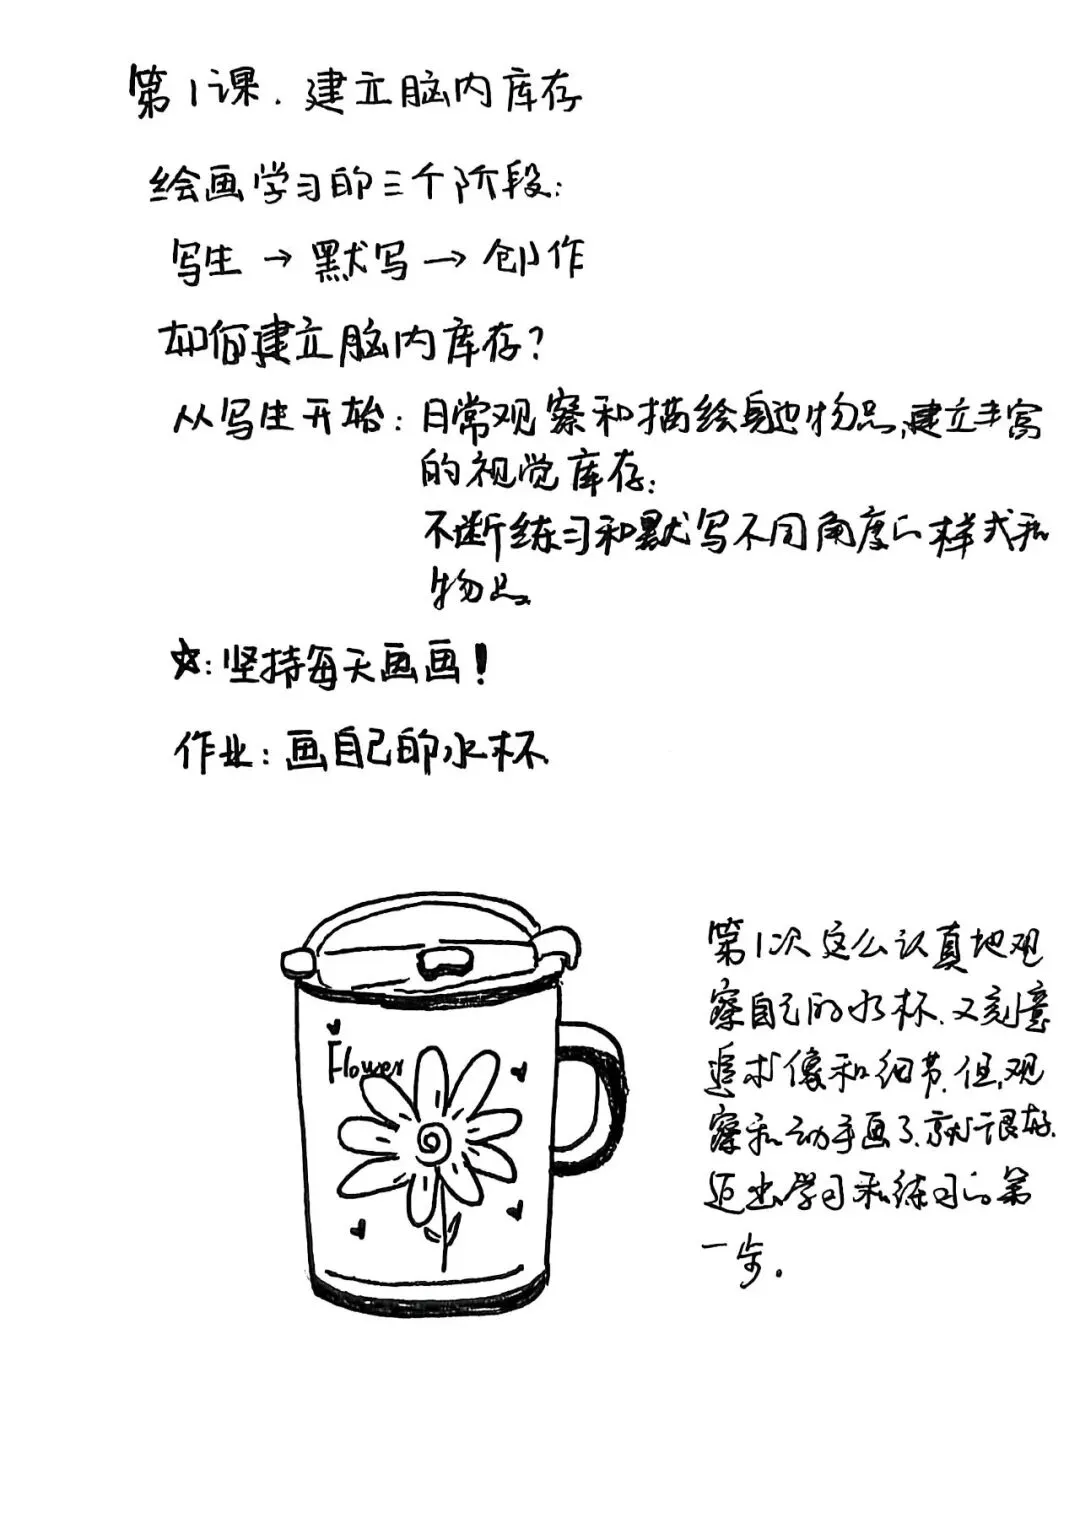 第1课. 建立脑内库存
绘画学习的三个阶段:
写生→默写→创作
如何建立脑内库存?
从写生开始: 日常观察和描绘身边物品,建立丰富
的视觉库存;
不断练习和默写不同角度的样式和
物品
☆: 坚持每天画画!
作业: 画自己的水杯
Flower
第1次这么认真地观
察自己的水杯.又刻意
追求像和细节.但,观
察和动手画了,就很好.
迈出学习和练习的第
一步.